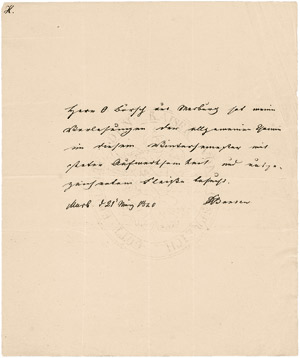 K.
Herr O Börsch aus Marburg hat meine
Vorlesungen der allgemeinen Chemie
in diesem Wintersemester mit
steter Aufmerksamkeit, und ausge-
zeichnetem Fleiße besucht.
Marb d 21 März 1840 RBunsen